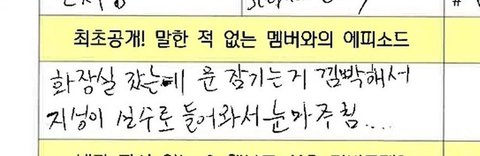 최초공개! 말한 적 없는 멤버와의 에피소드
화장실 갔는데 문 잠기는거 깜빡해서
지성이 실수로 들어와서 눈마주침....